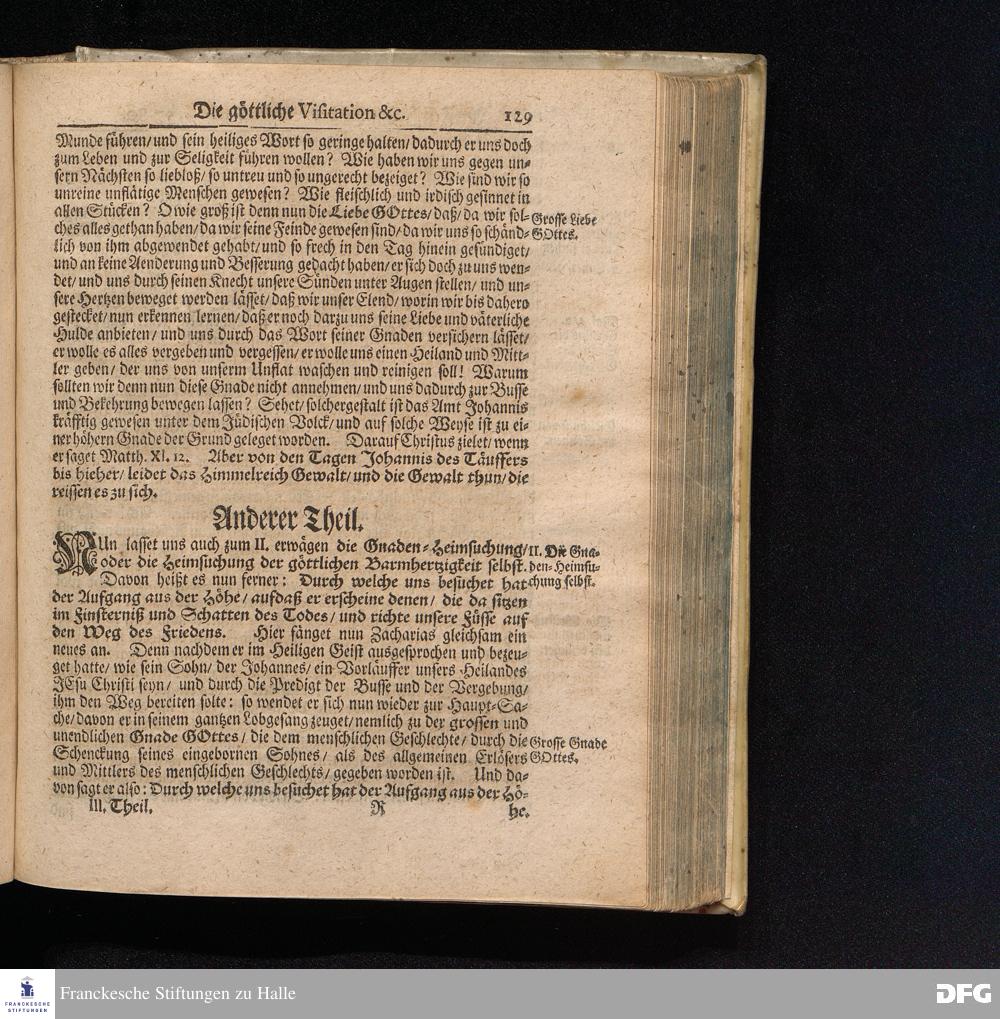 Die göttliche Visitation &c. 129
Munde führen/und sein heiliges Wort so geringe halten/dadurch er uns doch
zum Leben und zur Seligkeit führen wollen? Wie haben wir uns gegen un-
sern Nächsten so liebloß/so untreu und so ungerecht bezeiget? Wie sind wir so
unreine unflätige Menschen gewesen? Wie fleischlich und irdisch gesinnet in
allen Stücken? O wie groß ist denn nun die Liebe GOttes/daß/da wir sol-
ches alles gethan haben/da wir seine Feinde gewesen sind/da wir uns so schänd-
lich von ihm abgewendet gehabt/und so frech in den Tag hinein gesündiget/
und an keine Aenderung und Besserung gedacht haben/er sich doch zu uns wen-
det/und uns durch seinen Knecht unsere Sünden unter Augen stellen/ und un-
sere Hertzen beweget werden lässet/daß wir unser Elend/worin wir bis dahero
gestecket/nun erkennen lernen/daß er noch darzu uns seine Liebe und väterliche
Hulde anbieten/ und uns durch das Wort seiner Gnaden versichern lässet/
er wolle es alles vergeben und vergessen/er wolle uns einen Heiland und Mitt-
ler geben/ der uns von unserm Unflat waschen und reinigen soll! Warum
sollten wir denn nun diese Gnade nicht annehmen/und uns dadurch zur Busse
und Bekehrung bewegen lassen? Sehet/solchergestalt ist das Amt Johannis
kräfftig gewesen unter dem Jüdischen Volck/und auf solche Weyse ist zu ei-
ner höhern Gnade der Grund geleget worden. Darauf Christus zielet/wenn
er saget Matth. XI. 12. Aber von den Tagen Johannis des Täuffers
bis hieher/leidet das Himmelreich Gewalt/und die Gewalt thun/die
reissen es zu sich.
Grosse Liebe
GOttes.
Anderer Theil.
NUn lasset uns auch zum II. erwägen die Gnaden-Heimsuchung/
oder die Heimsuchung der göttlichen Barmhertzigkeit selbst.
Davon heißt es nun ferner: Durch welche uns besuchet hat
der Aufgang aus der Höhe/aufdaß er erscheine denen/ die da sitzen
im Finsterniß und Schatten des Todes/und richte unsere Füsse auf
den Weg des Friedens. Hier fänget nun Zacharias gleichsam ein
neues an. Denn nachdem er im Heiligen Geist ausgesprochen und bezeu-
get hatte/wie sein Sohn/ der Johannes/ein Vorläuffer unsers Heilandes
JEsu Christi seyn/ und durch die Predigt der Busse und der Vergebung/
ihm den Weg bereiten solte: so wendet er sich nun wieder zur Haupt-Sa-
che/davon er in seinem gantzen Lobgesang zeuget/nemlich zu der grossen und
unendlichen Gnade GOttes/die dem menschlichen Geschlechte/durch die
Schenckung seines eingebornen Sohnes/ als des allgemeinen Erlösers
und Mittlers des menschlichen Geschlechts/gegeben worden ist. Und da-
von sagt er also: Durch welche uns besuchet hat der Aufgang aus der Hö-
II. Die Gna-
den-Heimsu-
chung selbst.
Grosse Gnade
GOttes.
III. Theil. R he.
FRANCKESCHE
STIFTUNGEN
Franckesche Stiftungen zu Halle
DFG